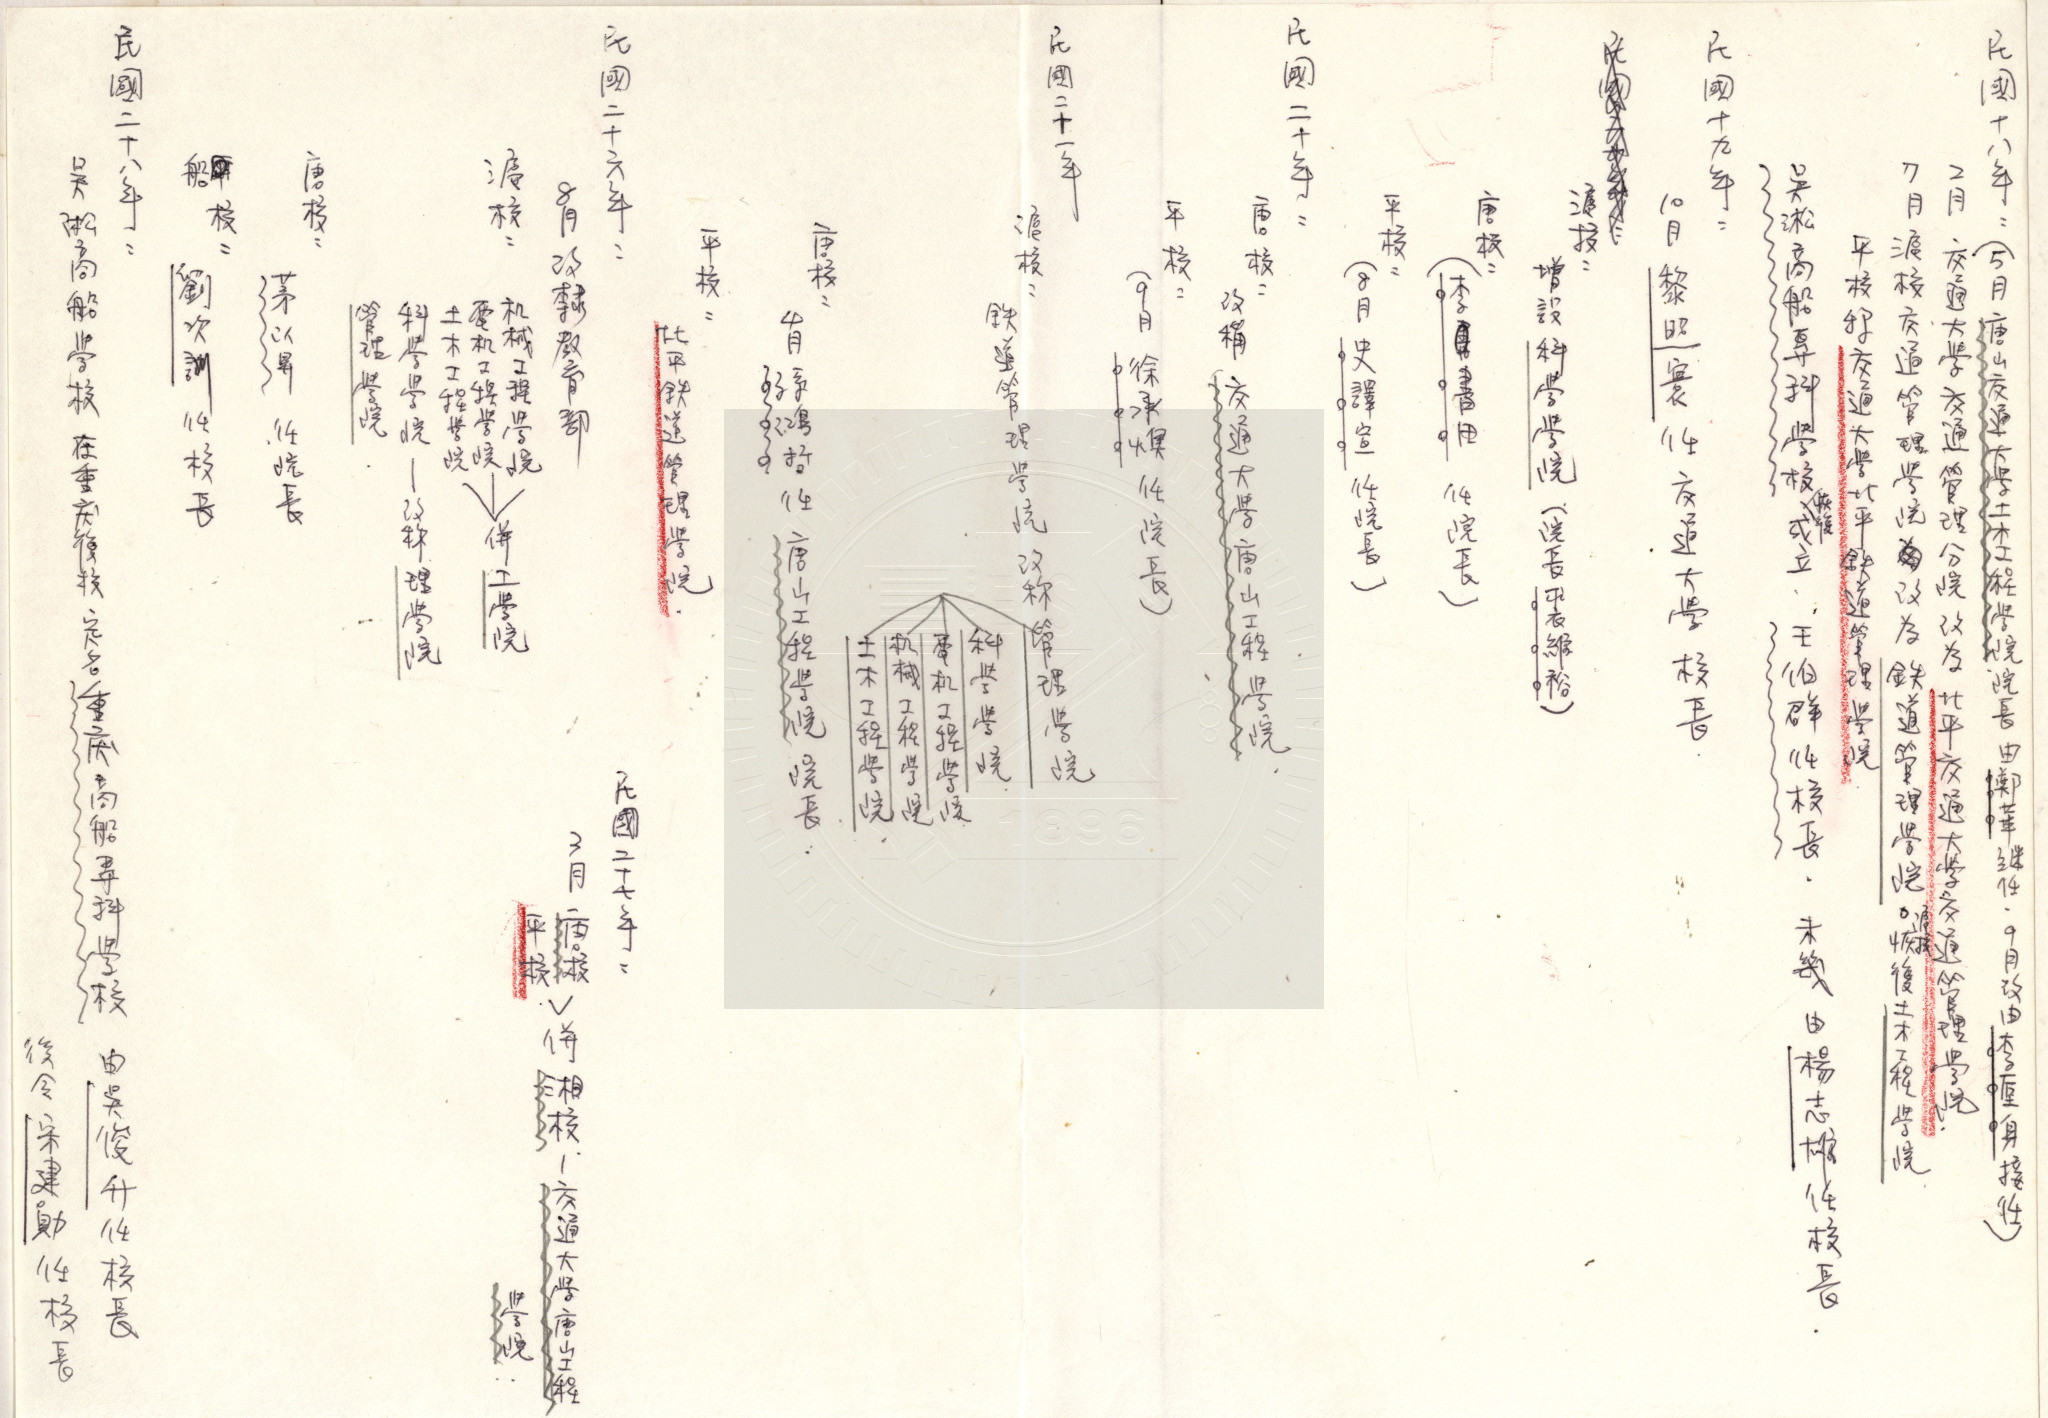 民國十八年：(5月唐山交通大學土木工程學院院長由鄭華継任.9月改由李垕身接任)
2月 交通大學交通管理分院改為北平交通大學交通管理學院.
7月滬校交通管理學院改為鉄道管理學院。滬校恢復土木工程學院.
平校称交通大學北平鉄道管理學院
吳淞商船專科學校恢復成立. 王伯群任校長. 未幾由楊志雄任校長.
民國十九年：
10月黎照寰任交通大學校長.
滬校：增設科學學院(院長裘維裕)
唐校：(李書田任院長)
平校：(8月史譯宣任院長)
民國二十年：
唐校：改稱交通大學唐山工程學院.
平校：(9月徐承燠任院長)
民國二十一年
滬校：鉄道管理學院改称管理學院
科學學院.
電机工程學院
机械工程學院
土木工程學院.
唐校：4月孫鴻哲任唐山工程學院院長.
平校：北平鉄道管理學院.
民國二十六年：
8月改隸教育部
滬校：机械工程學院
電机工程學院
土木工程學院
併工學院
科學學院—改称理學院
管理學院.
唐校：茅以昇任院長
船校：劉次訓任校長
民國二十七年：
3月唐校
平校.
併湘校—交通大學唐山工程
學院..
民國二十八年：
吳淞商船學校在重慶復校定名重慶商船專科學校由吳俊升任校長
後令宋建勛任校長
1896